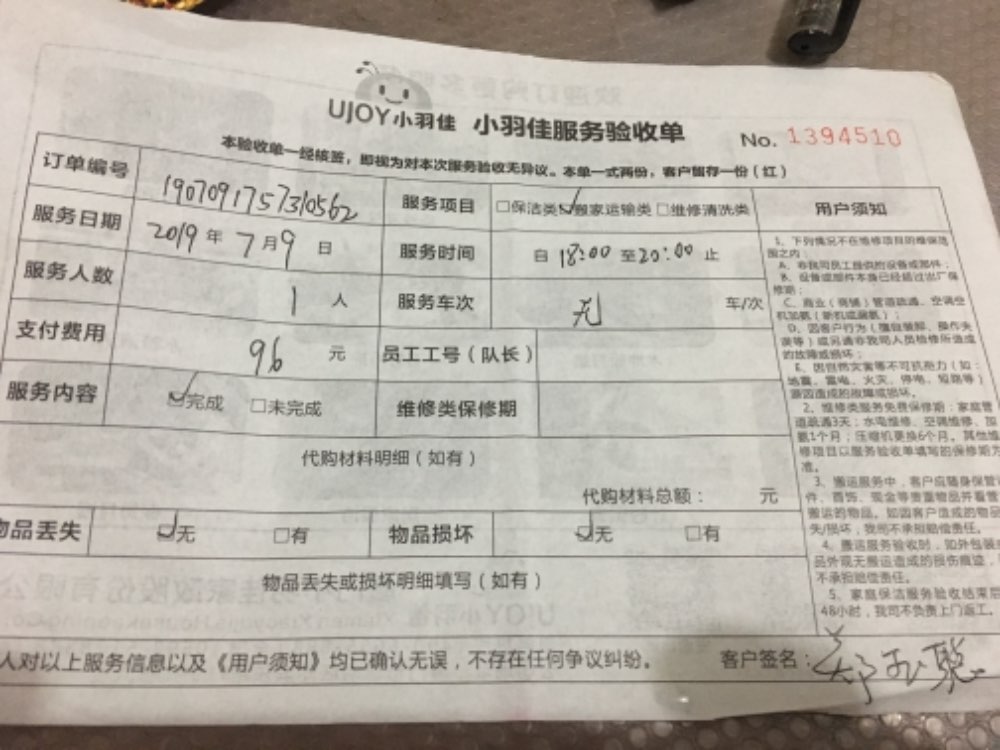 UJOY小羽佳 小羽佳服务验收单 No. 1394510
本验收单一经核签，即视为对本次服务验收无异议。本单一式两份，客户留存一份（红）
订单编号 1907091757310562 服务项目 □保洁类 ☑搬家运输类 □维修清洗类 用户须知
服务日期 2019 年 7 月 9 日 服务时间 自 18:00 至 20:00 止
服务人数 1 人 服务车次 无 车/次
支付费用 96 元 员工工号（队长）
服务内容 ☑完成 □未完成 维修类保修期
代购材料明细（如有）
代购材料总额： 元
物品丢失 ☑无 □有 物品损坏 ☑无 □有
物品丢失或损坏明细填写（如有）
1、下列情况不在维修项目的维保范
围之内：
A、非我司员工提供的设备或部件；
B、设备或部件本身已经超过出厂保
修期；
C、商业（商铺）管道疏通、空调空
机加氨（新机或漏氨）；
D、因客户行为（擅自破解、操作失
误等）或另请非我司人员检修所造成
的故障或损坏；
E、因自然灾害等不可抗拒力（如：
地震、雷电、火灾、停电、短路等）
源因造成的故障或损坏。
2、维修类服务免费保修期：家庭管
道疏通3天；水电维修、空调维修、加
氨1个月；压缩机更换6个月。其他维
修项目以服务验收单填写的保修期为
准。
3、搬运服务中，客户应随身保管
件、首饰、现金等贵重物品并看管
搬运的物品。如因客户造成的物品
失/损坏，我司不承担赔偿责任。
4、搬运服务验收时，如外包装
品外观无搬运造成的损伤痕迹，
不承担赔偿责任。
5、家庭保洁服务验收结束后
48小时，我司不负责上门返工。
人对以上服务信息以及《用户须知》均已确认无误，不存在任何争议纠纷。 客户签名：